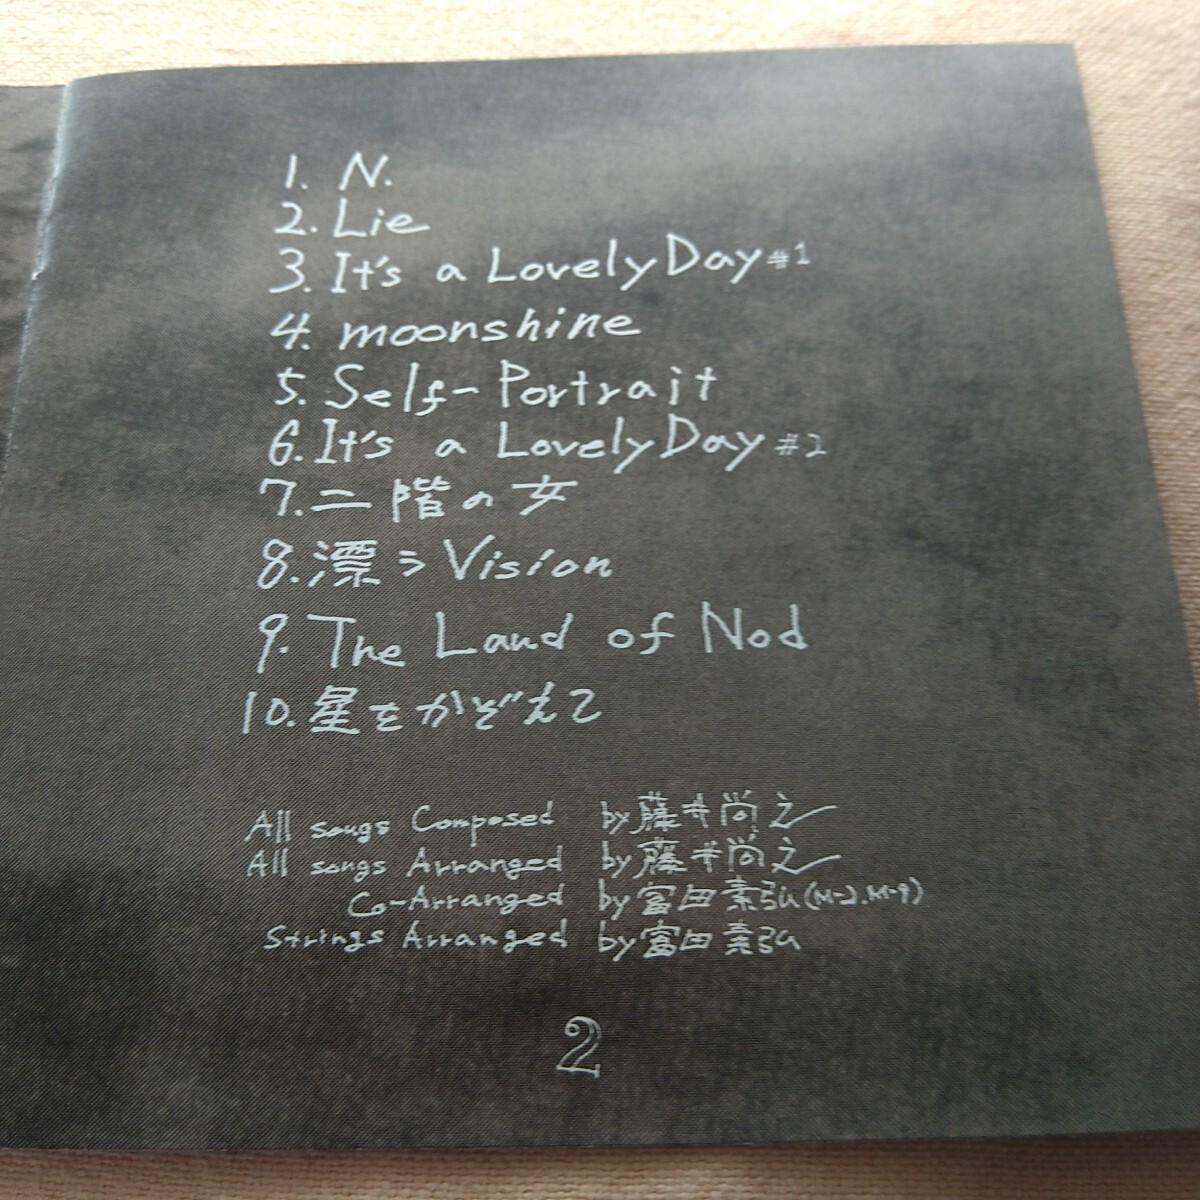 1. N.
2. Lie
3. It's a Lovely Day #1
4. moonshine
5. Self-Portrait
6. It's a Lovely Day #2
7. 二階の女
8. 漂うVision
9. The Land of Nod
10. 星をかぞえて
All songs Composed by 藤井尚之
All songs Arranged by 藤井尚之
Co-Arranged by 富田素弘 (M-2.M-9)
Strings Arranged by 富田素弘
2